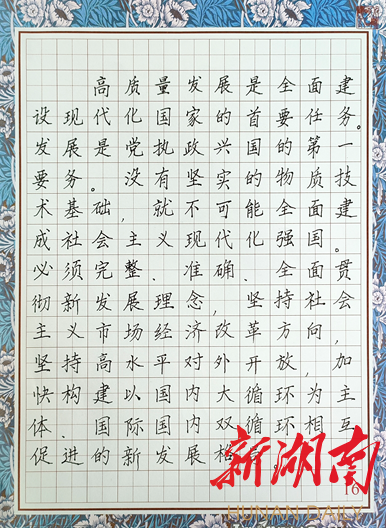 高质量发展是全面建
设现代化国家的首要任务。
发展是党执政兴国的第一
要务。没有坚实的物质技
术基础，就不可能全面建
成社会主义现代化强国。
必须完整、准确、全面贯
彻新发展理念，坚持社会
主义市场经济改革方向，
坚持高水平对外开放，加
快构建以国内大循环为主
体、国际国内双循环相互
促进的新发展格
新湖南
16
HUNAN DAILY